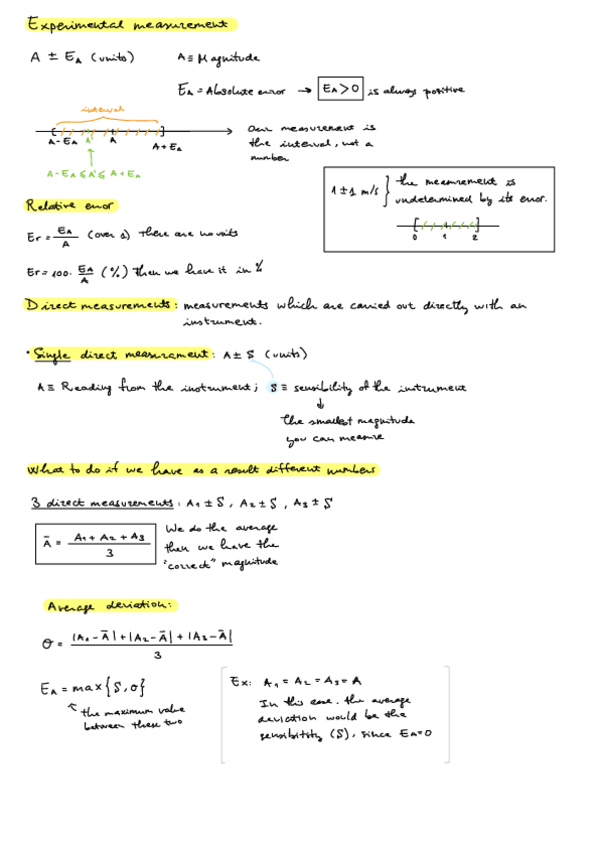 Experimental measurement
A ± EA (units) A ≡ Magnitude
EA = Absolute error → EA > 0 is always positive
interval
A - EA A' A A + EA
Our measurement is
the interval, not a
number
A - EA ≤ A' ≤ A + EA
1 ± 1 m/s } the measurement is
undetermined by its error.
0 1 2
Relative error
Er = EA / A (over 1) there are no units
Er = 100 · EA / A (%) then we have it in %
Direct measurements: measurements which are carried out directly with an
instrument.
· Single direct measurament: A ± S (units)
A ≡ Reading from the instrument; S ≡ sensibility of the instrument
↓
The smallest magnitude
you can measure
What to do if we have as a result different numbers
3 direct measurements: A1 ± S, A2 ± S, A3 ± S
Ā = A1 + A2 + A3 / 3
We do the average
then we have the
"correct" magnitude
Average deviation:
σ = |A1 - Ā| + |A2 - Ā| + |A3 - Ā| / 3
EA = max{S, σ}
the maximum value
between these two
Ex: A1 = A2 = A3 = A
In this case, the average
deviation would be the
sensibitity (S), since EA=0